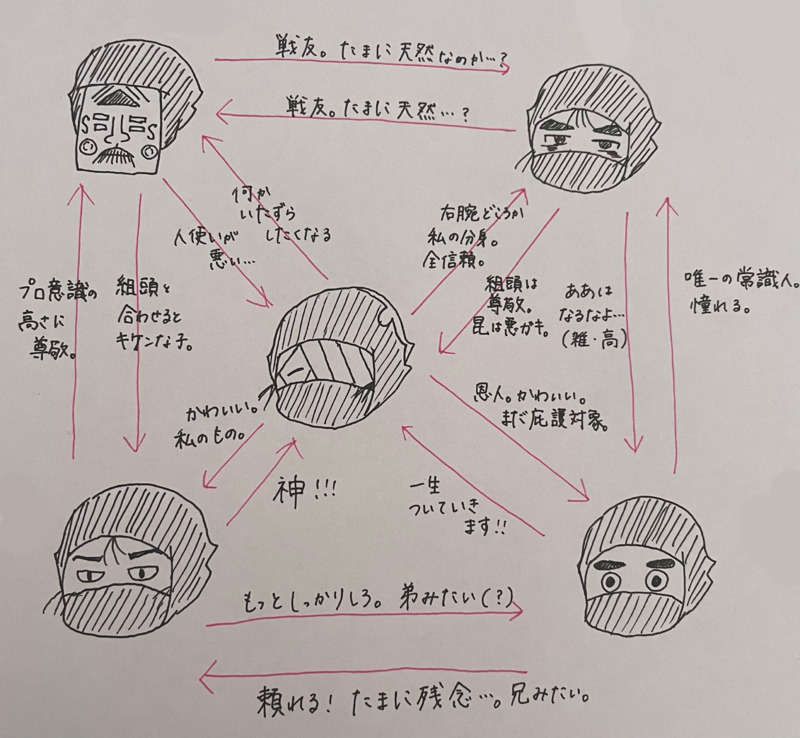 戦友。たまに天然なのか…?
戦友。たまに天然…?
何か
いたずら
したくなる
人使いが
悪い…
右腕どころか
私の分身。
全信頼。
組頭は
尊敬。
昆は悪ガキ。
ああは
なるなよ…
(雑・高)
唯一の常識人。
憧れる。
プロ意識の
高さに
尊敬。
組頭と
合わせると
キケンな子。
かわいい。
私のもの。
神!!!
恩人。かわいい。
まだ庇護対象。
一生
ついていき
ます!!
もっとしっかりしろ。弟みたい(?)
頼れる!たまに残念…。兄みたい。